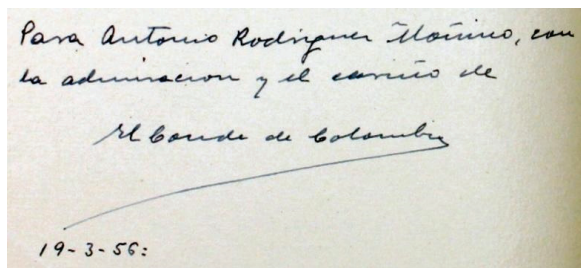 Para Antonio Rodriguez Moñino, con
la admiracion y el cariño de
El Conde de Colombí
19-3-56: